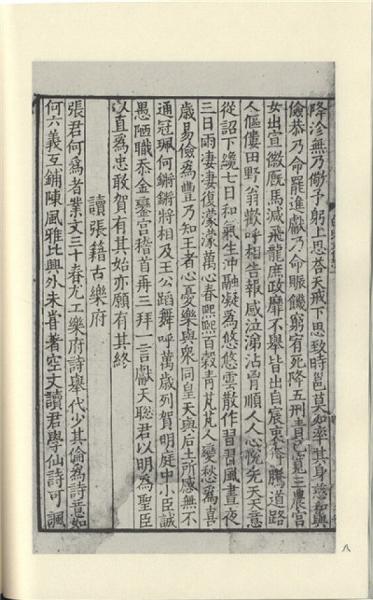 降沴無乃儆予躬上思答天戒下思致時邕莫如率其身慈和與
儉恭乃命罷進獻乃命賑饑窮宥死降五刑責己寬三農宮
女出宣徽廄馬減飛龍庶政靡不舉皆出自宸衷奔騰道路
人傴僂田野翁歡呼相告報感泣涕沾胷順人人心悅先天天意
從詔下纔七日和氣生沖融凝為悠悠雲散作習習風晝夜
三日雨淒淒復濛濛萬心春熈熈百穀青芃芃人變愁為喜
歲易儉為豐乃知王者心憂樂與衆同皇天與后土所感無不
通冠珮何鏘鏘將相及王公蹈舞呼萬歲列賀明庭中小臣誠
愚陋職忝金鑾宮稽首再三拜一言獻天聦君以明為聖臣
以直為忠敢賀有其始亦願有其終
讀張籍古樂府
張君何為者業文三十春尤工樂府詩舉代少其倫為詩意如
何六義互鋪陳風雅比興外未甞著空文讀君學仙詩可諷
八